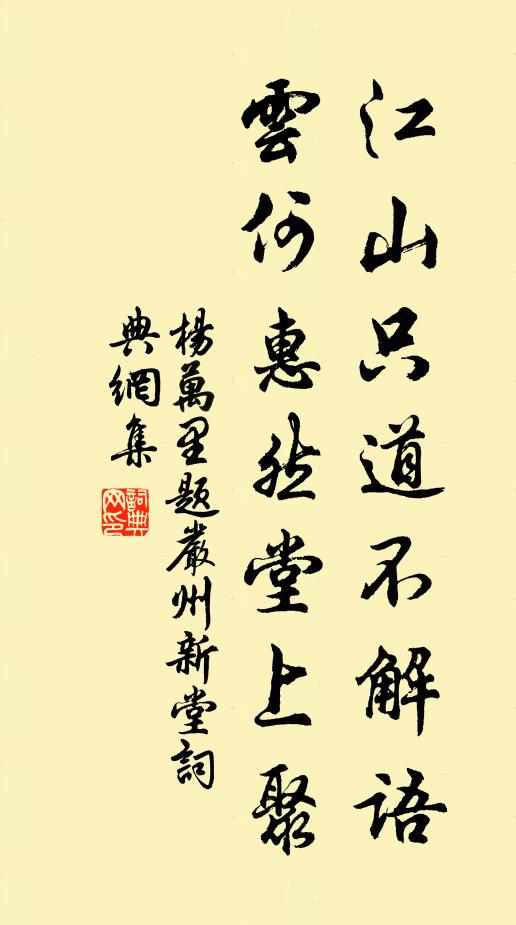 江山只道不解語
雲何惠然堂上聚
楊萬里題嚴州新堂詞
典網集
詞典
网印